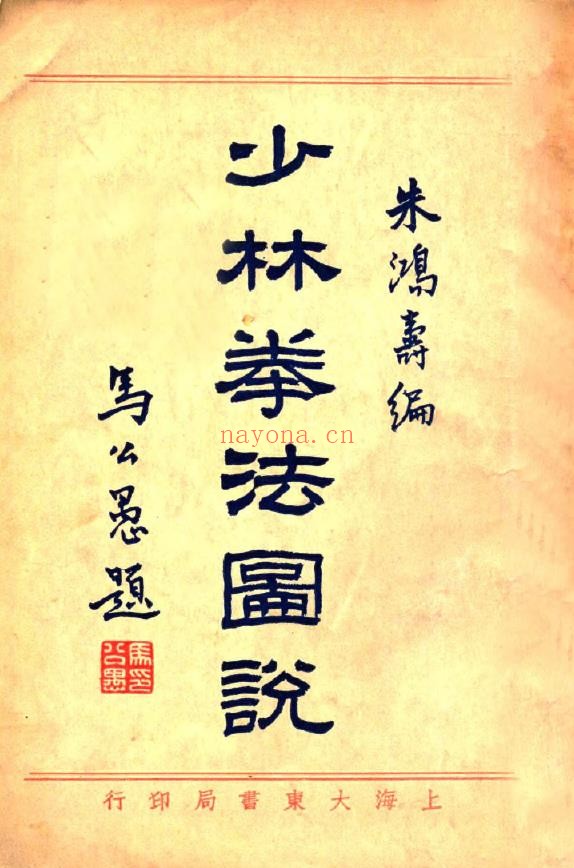 朱鴻壽編
少林拳法圖說
馬公愚題
馬公愚印
上海大東書局印行
nayona.cn